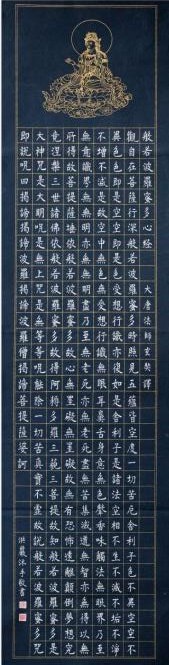 般若波羅蜜多心經 大唐法師玄奘譯
觀自在菩薩行深般若波羅蜜多時照見五蘊皆空度一切苦厄舍利子色不異空空不
異色色即是空空即是色受想行識亦復如是舍利子是諸法空相不生不滅不垢不淨
不增不減是故空中無色無受想行識無眼耳鼻舌身意無色聲香味觸法無眼界乃至
無意識界無無明亦無無明盡乃至無老死亦無老死盡無苦集滅道無智亦無得以無
所得故菩提薩埵依般若波羅蜜多故心無罣礙無罣礙故無有恐怖遠離顛倒夢想究
竟涅槃三世諸佛依般若波羅蜜多故得阿耨多羅三藐三菩提故知般若波羅蜜多是
大神咒是大明咒是無上咒是無等等咒能除一切苦真實不虛故說般若波羅蜜多咒
即說咒曰揭諦揭諦波羅揭諦波羅僧揭諦菩提薩婆訶
沐手敬書